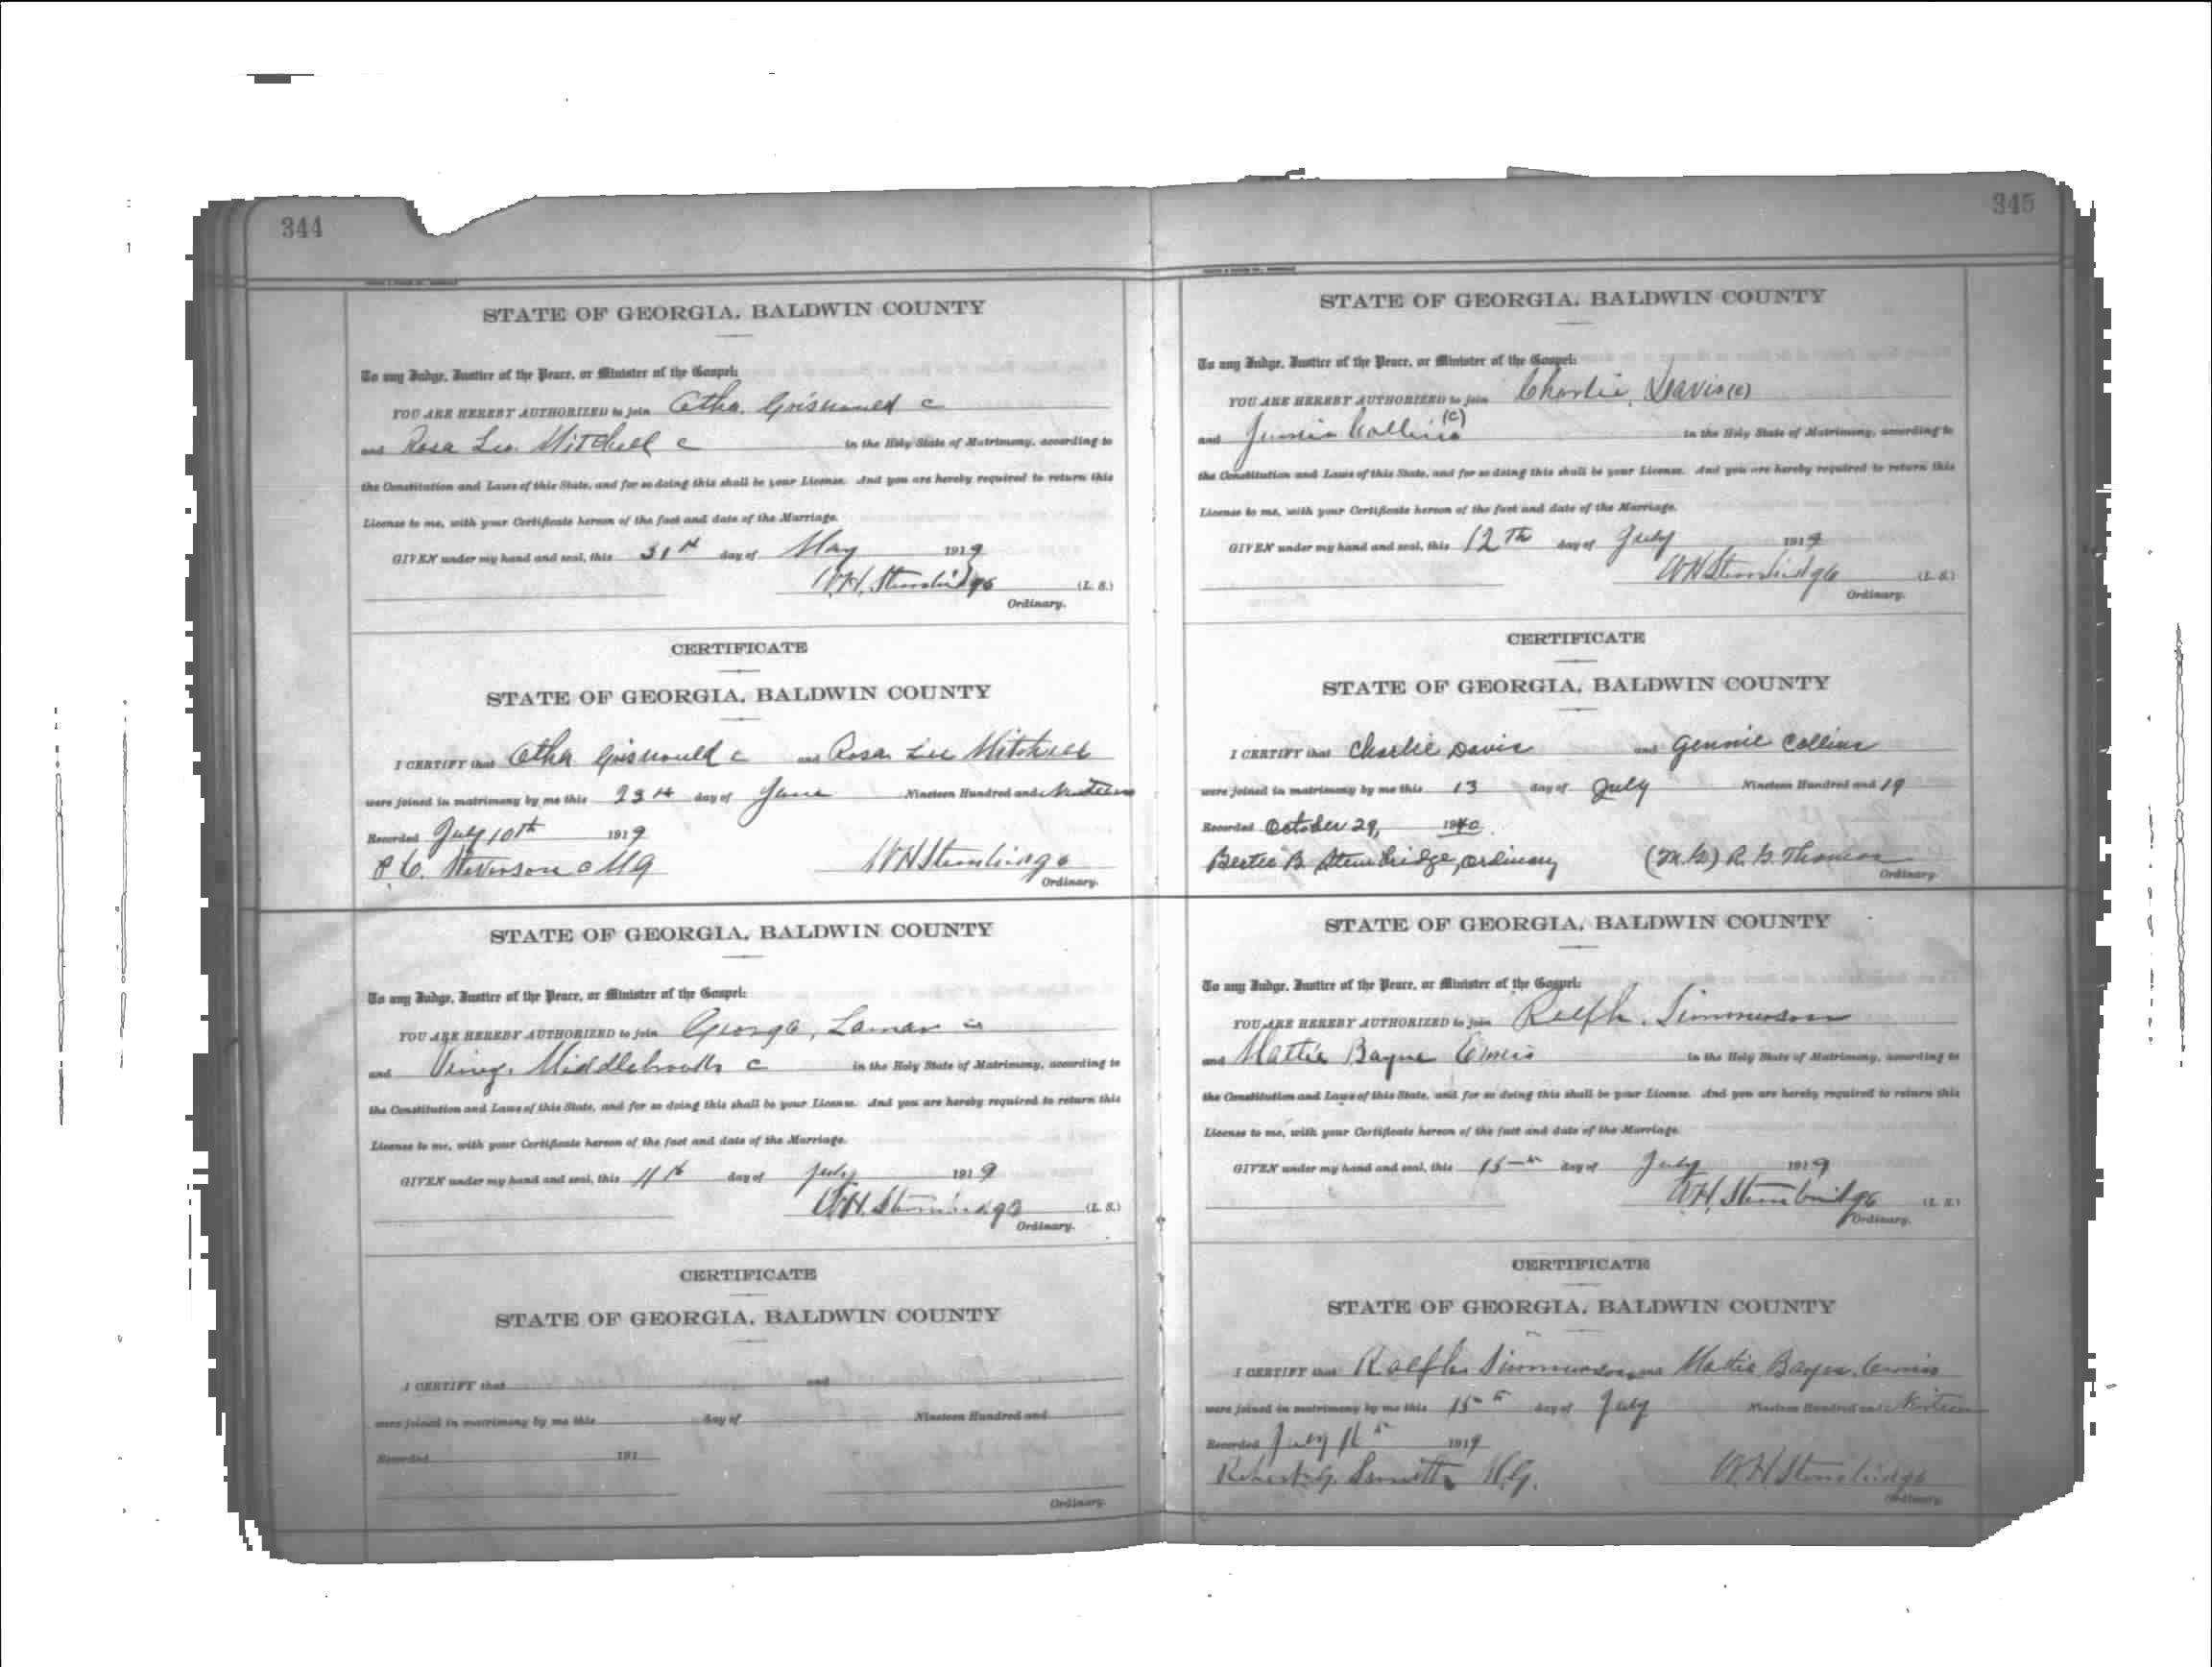 344
STATE OF GEORGIA, BALDWIN COUNTY
To any Judge, Justice of the Peace, or Minister of the Gospel:
YOU ARE HEREBY AUTHORIZED to join Otha Grisnould c
and Rosa Lee Mitchell c in the Holy State of Matrimony, according to
the Constitution and Laws of this State, and for so doing this shall be your License. And you are hereby required to return this
License to me, with your Certificate hereon of the fact and date of the Marriage.
GIVEN under my hand and seal, this 31st day of May 1919
W.H. Stembridge (L. S.)
Ordinary.
CERTIFICATE
STATE OF GEORGIA, BALDWIN COUNTY
I CERTIFY that Otha Grisnould c and Rosa Lee Mitchell
were joined in matrimony by me this day of June Nineteen Hundred and
Recorded July 10th 1919
P. C. Steverson c MG WH Stembridge
Ordinary.
STATE OF GEORGIA, BALDWIN COUNTY
To any Judge, Justice of the Peace, or Minister of the Gospel:
YOU ARE HEREBY AUTHORIZED to join George, Lamar c
and Middlebrooks c in the Holy State of Matrimony, according to
the Constitution and Laws of this State, and for so doing this shall be your License. And you are hereby required to return this
License to me, with your Certificate hereon of the fact and date of the Marriage.
GIVEN under my hand and seal, this 11th day of July 1919
W.H. Stembridge (L. S.)
Ordinary.
CERTIFICATE
STATE OF GEORGIA, BALDWIN COUNTY
I CERTIFY that and
were joined in matrimony by me this day of Nineteen Hundred and
Recorded 191
Ordinary.
345
STATE OF GEORGIA, BALDWIN COUNTY
To any Judge, Justice of the Peace, or Minister of the Gospel:
YOU ARE HEREBY AUTHORIZED to join Charlie, Davis (c)
and Jennie Collins (c) in the Holy State of Matrimony, according to
the Constitution and Laws of this State, and for so doing this shall be your License. And you are hereby required to return this
License to me, with your Certificate hereon of the fact and date of the Marriage.
GIVEN under my hand and seal, this 12th day of July 1919
WH Stembridge (L. S.)
Ordinary.
CERTIFICATE
STATE OF GEORGIA, BALDWIN COUNTY
I CERTIFY that Charlie Davis and Gennie Collins
were joined in matrimony by me this 13 day of July Nineteen Hundred and 19
Recorded October 29, 1940.
Bertie B. Stembridge, Ordinary (M.G) R. G. Thomas
Ordinary
STATE OF GEORGIA, BALDWIN COUNTY
To any Judge, Justice of the Peace, or Minister of the Gospel:
YOU ARE HEREBY AUTHORIZED to join Ralph. Simmerson
and Mattie Bayne Ennis in the Holy State of Matrimony, according to
the Constitution and Laws of this State, and for so doing this shall be your License. And you are hereby required to return this
License to me, with your Certificate hereon of the fact and date of the Marriage.
GIVEN under my hand and seal, this 15th day of July 1919
W.H. Stembridge (L. S.)
Ordinary.
CERTIFICATE
STATE OF GEORGIA, BALDWIN COUNTY
I CERTIFY that Ralph Simmerson and Mattie Bayne Ennis
were joined in matrimony by me this 15th day of July Nineteen Hundred and
Recorded July 16th 1919
Robert G. Smith M.G. W.H Stembridge
Ordinary